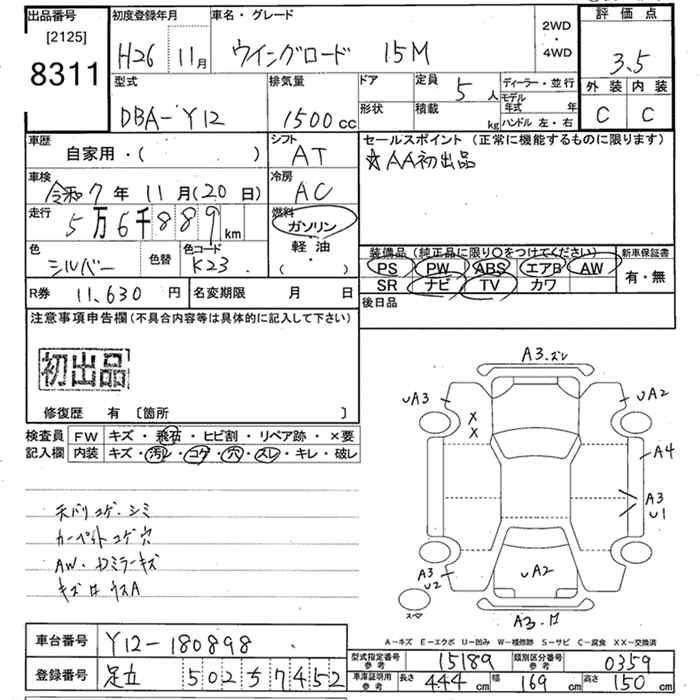 出品番号
[2125]
8311
初度登録年月
H26 11月
車名・グレード
ウイングロード 15M
2WD
・
4WD
評価点
3.5
外装 内装
C C
型式
DBA-Y12
排気量
1500cc
ドア
形状
定員 5人
積載 kg
ディーラー・並行
モデル年式 年
ハンドル 左・右
車歴
自家用・( )
シフト
AT
セールスポイント (正常に機能するものに限ります)
☆AA初出品
車検
令和7年11月(20日)
冷房
AC
走行
5万6千889km
燃料
ガソリン
・
軽油
・
( )
色
シルバー
色替
色コード
K23
装備品(純正品に限り○をつけてください)
PS PW ABS エアB AW
SR ナビ TV カワ
新車保証書
有・無
R券 11,630円
名変期限 月 日
後日品
注意事項申告欄(不具合内容等は具体的に記入して下さい)
初出品
修復歴 有 [箇所 ]
検査員
記入欄
FW キズ・飛石・ヒビ割・リペア跡・×要
内装 キズ・汚レ・コゲ・穴・スレ・キレ・破レ
カーペットコゲ穴
A3.ズレ
UA3
UA2
X
X
A4
A3
U1
A3
U2
UA2
スペア
A-キズ E-エクボ U-凹み W-補修跡 S-サビ C-腐食 XX-交換済
車台番号 Y12-180898
登録番号 足立 502 ち 7452
型式指定番号 参考 15189
類別区分番号 参考 0359
車庫証明用 参考 長さ 444cm 幅 169cm 高さ 150cm